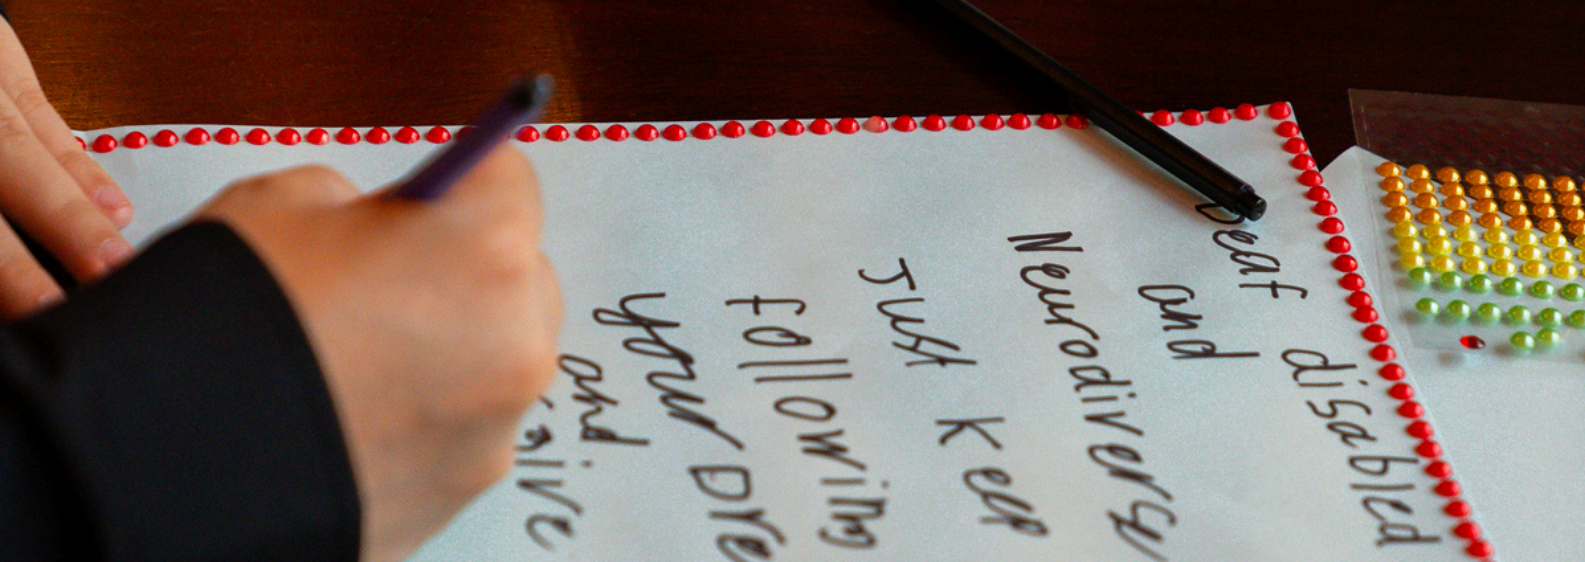 Deaf disabled
and
Neurodiverse
Just Keep
following
your Dre
and